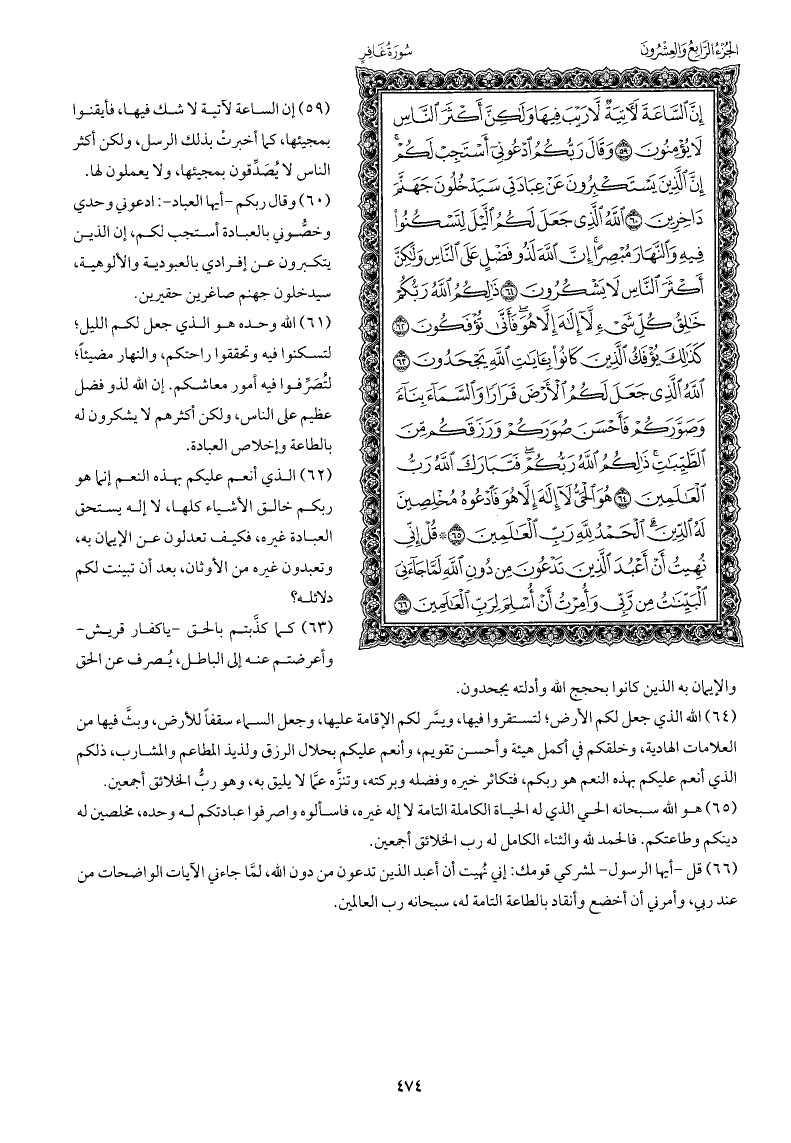 الجزء الرابع والعشرون
سورة غافر
إِنَّ ٱلسَّاعَةَ لَأٓتِيَةٌ لَّا رَيْبَ فِيهَا وَلَٰكِنَّ أَكْثَرَ ٱلنَّاسِ
لَا يُؤْمِنُونَ ٥٩ وَقَالَ رَبُّكُمُ ٱدْعُونِىٓ أَسْتَجِبْ لَكُمْۚ
إِنَّ ٱلَّذِينَ يَسْتَكْبِرُونَ عَنْ عِبَادَتِى سَيَدْخُلُونَ جَهَنَّمَ
دَاخِرِينَ ٦٠ ٱللَّهُ ٱلَّذِى جَعَلَ لَكُمُ ٱلَّيْلَ لِتَسْكُنُوا۟
فِيهِ وَٱلنَّهَارَ مُبْصِرًاۚ إِنَّ ٱللَّهَ لَذُو فَضْلٍ عَلَى ٱلنَّاسِ وَلَٰكِنَّ
أَكْثَرَ ٱلنَّاسِ لَا يَشْكُرُونَ ٦١ ذَٰلِكُمُ ٱللَّهُ رَبُّكُمْ
خَٰلِقُ كُلِّ شَىْءٍ لَّآ إِلَٰهَ إِلَّا هُوَۖ فَأَنَّىٰ تُؤْفَكُونَ ٦٢
كَذَٰلِكَ يُؤْفَكُ ٱلَّذِينَ كَانُوا۟ بِـَٔايَٰتِ ٱللَّهِ يَجْحَدُونَ ٦٣
ٱللَّهُ ٱلَّذِى جَعَلَ لَكُمُ ٱلْأَرْضَ قَرَارًا وَٱلسَّمَآءَ بِنَآءً
وَصَوَّرَكُمْ فَأَحْسَنَ صُوَرَكُمْ وَرَزَقَكُم مِّنَ
ٱلطَّيِّبَٰتِۚ ذَٰلِكُمُ ٱللَّهُ رَبُّكُمْۖ فَتَبَارَكَ ٱللَّهُ رَبُّ
ٱلْعَٰلَمِينَ ٦٤ هُوَ ٱلْحَىُّ لَآ إِلَٰهَ إِلَّا هُوَ فَٱدْعُوهُ مُخْلِصِينَ
لَهُ ٱلدِّينَۗ ٱلْحَمْدُ لِلَّهِ رَبِّ ٱلْعَٰلَمِينَ ٦٥ ۞ قُلْ إِنِّى
نُهِيتُ أَنْ أَعْبُدَ ٱلَّذِينَ تَدْعُونَ مِن دُونِ ٱللَّهِ لَمَّا جَآءَنِىَ
ٱلْبَيِّنَٰتُ مِن رَّبِّى وَأُمِرْتُ أَنْ أُسْلِمَ لِرَبِّ ٱلْعَٰلَمِينَ ٦٦
(٥٩) إن الساعة لآتية لا شك فيها، فأيقنوا
بمجيئها، كما أخبرتْ بذلك الرسل، ولكن أكثر
الناس لا يُصَدِّقون بمجيئها، ولا يعملون لها.
(٦٠) وقال ربكم -أيها العباد-: ادعوني وحدي
وخصُّوني بالعبادة أستجب لكم، إن الذين
يتكبرون عن إفرادي بالعبودية والألوهية،
سيدخلون جهنم صاغرين حقيرين.
(٦١) الله وحده هو الذي جعل لكم الليل؛
لتسكنوا فيه وتحققوا راحتكم، والنهار مضيئاً؛
لتُصَرِّفوا فيه أمور معاشكم. إن الله لذو فضل
عظيم على الناس، ولكن أكثرهم لا يشكرون له
بالطاعة وإخلاص العبادة.
(٦٢) الذي أنعم عليكم بهذه النعم إنما هو
ربكم خالق الأشياء كلها، لا إله يستحق
العبادة غيره، فكيف تعدلون عن الإيمان به،
وتعبدون غيره من الأوثان، بعد أن تبينت لكم
دلائله؟
(٦٣) كما كذَّبتم بالحق -ياكفار قريش-
وأعرضتم عنه إلى الباطل، يُصرف عن الحق
والإيمان به الذين كانوا بحجج الله وأدلته يجحدون.
(٦٤) الله الذي جعل لكم الأرض؛ لتستقروا فيها، ويسَّر لكم الإقامة عليها، وجعل السماء سقفاً للأرض، وبثَّ فيها من
العلامات الهادية، وخلقكم في أكمل هيئة وأحسن تقويم، وأنعم عليكم بحلال الرزق ولذيذ المطاعم والمشارب، ذلكم
الذي أنعم عليكم بهذه النعم هو ربكم، فتكاثر خيره وفضله وبركته، وتنزَّه عمَّا لا يليق به، وهو ربُّ الخلائق أجمعين.
(٦٥) هو الله سبحانه الحي الذي له الحياة الكاملة التامة لا إله غيره، فاسألوه واصرفوا عبادتكم له وحده، مخلصين له
دينكم وطاعتكم. فالحمد لله والثناء الكامل له رب الخلائق أجمعين.
(٦٦) قل -أيها الرسول- لمشركي قومك: إني نُهيت أن أعبد الذين تدعون من دون الله، لمَّا جاءني الآيات الواضحات من
عند ربي، وأمرني أن أخضع وأنقاد بالطاعة التامة له، سبحانه رب العالمين.
٤٧٤